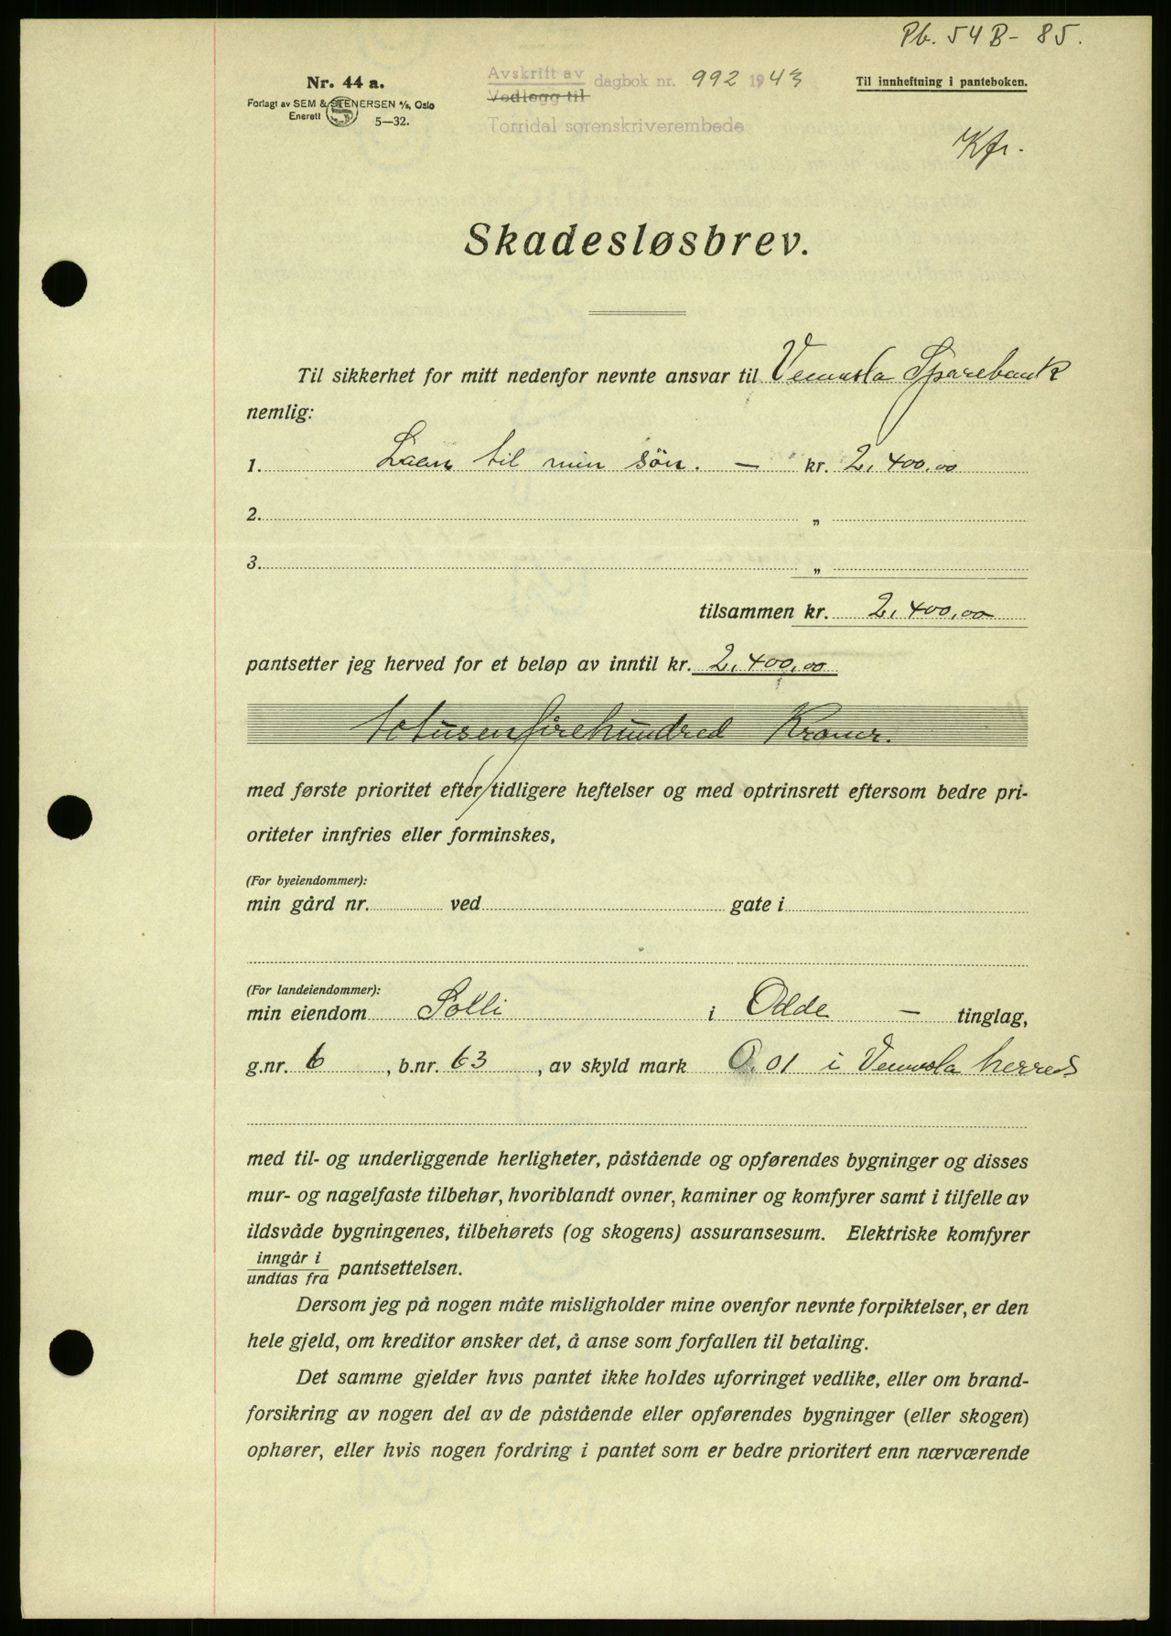 Pb. 54 B - 85.
Nr. 44 a.
Forlagt av SEM & STENERSEN A/s, Oslo
Enerett 5—32.
Avskrift av
Vedlegg til
dagbok nr. 992 1943
Torridal sorenskriverembede
Til innheftning i panteboken.
Kfr.
Skadesløsbrev.
Til sikkerhet for mitt nedenfor nevnte ansvar til Vennesla Sparebank
nemlig:
1. Laan til min søn. — kr. 2.400.00
2. „
3. „
tilsammen kr. 2.400.00
pantsetter jeg herved for et beløp av inntil kr. 2.400.00
totusenfirehundred Kroner.
med første prioritet efter tidligere heftelser og med optrinsrett eftersom bedre pri-
oriteter innfries eller forminskes,
(For byeiendommer):
min gård nr. ved gate i
(For landeiendommer):
min eiendom Solli i Odde — tinglag,
g.nr. 6, b.nr. 63, av skyld mark 0.01 i Vennesla herred
med til- og underliggende herligheter, påstående og opførendes bygninger og disses
mur- og nagelfaste tilbehør, hvoriblandt ovner, kaminer og komfyrer samt i tilfelle av
ildsvåde bygningenes, tilbehørets (og skogens) assuransesum. Elektriske komfyrer
inngår i
undtas fra pantsettelsen.
Dersom jeg på nogen måte misligholder mine ovenfor nevnte forpiktelser, er den
hele gjeld, om kreditor ønsker det, å anse som forfallen til betaling.
Det samme gjelder hvis pantet ikke holdes uforringet vedlike, eller om brand-
forsikring av nogen del av de påstående eller opførendes bygninger (eller skogen)
ophører, eller hvis nogen fordring i pantet som er bedre prioritert enn nærværende